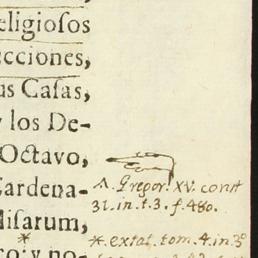 eligiosos
cciones,
us Casas,
y los De-
Octavo,
Cardena-
Missarum,
co: y no-
A. Gregor. XV. const
31. in. t. 3. f. 480.
*. extat. tom. 4. in. 3º